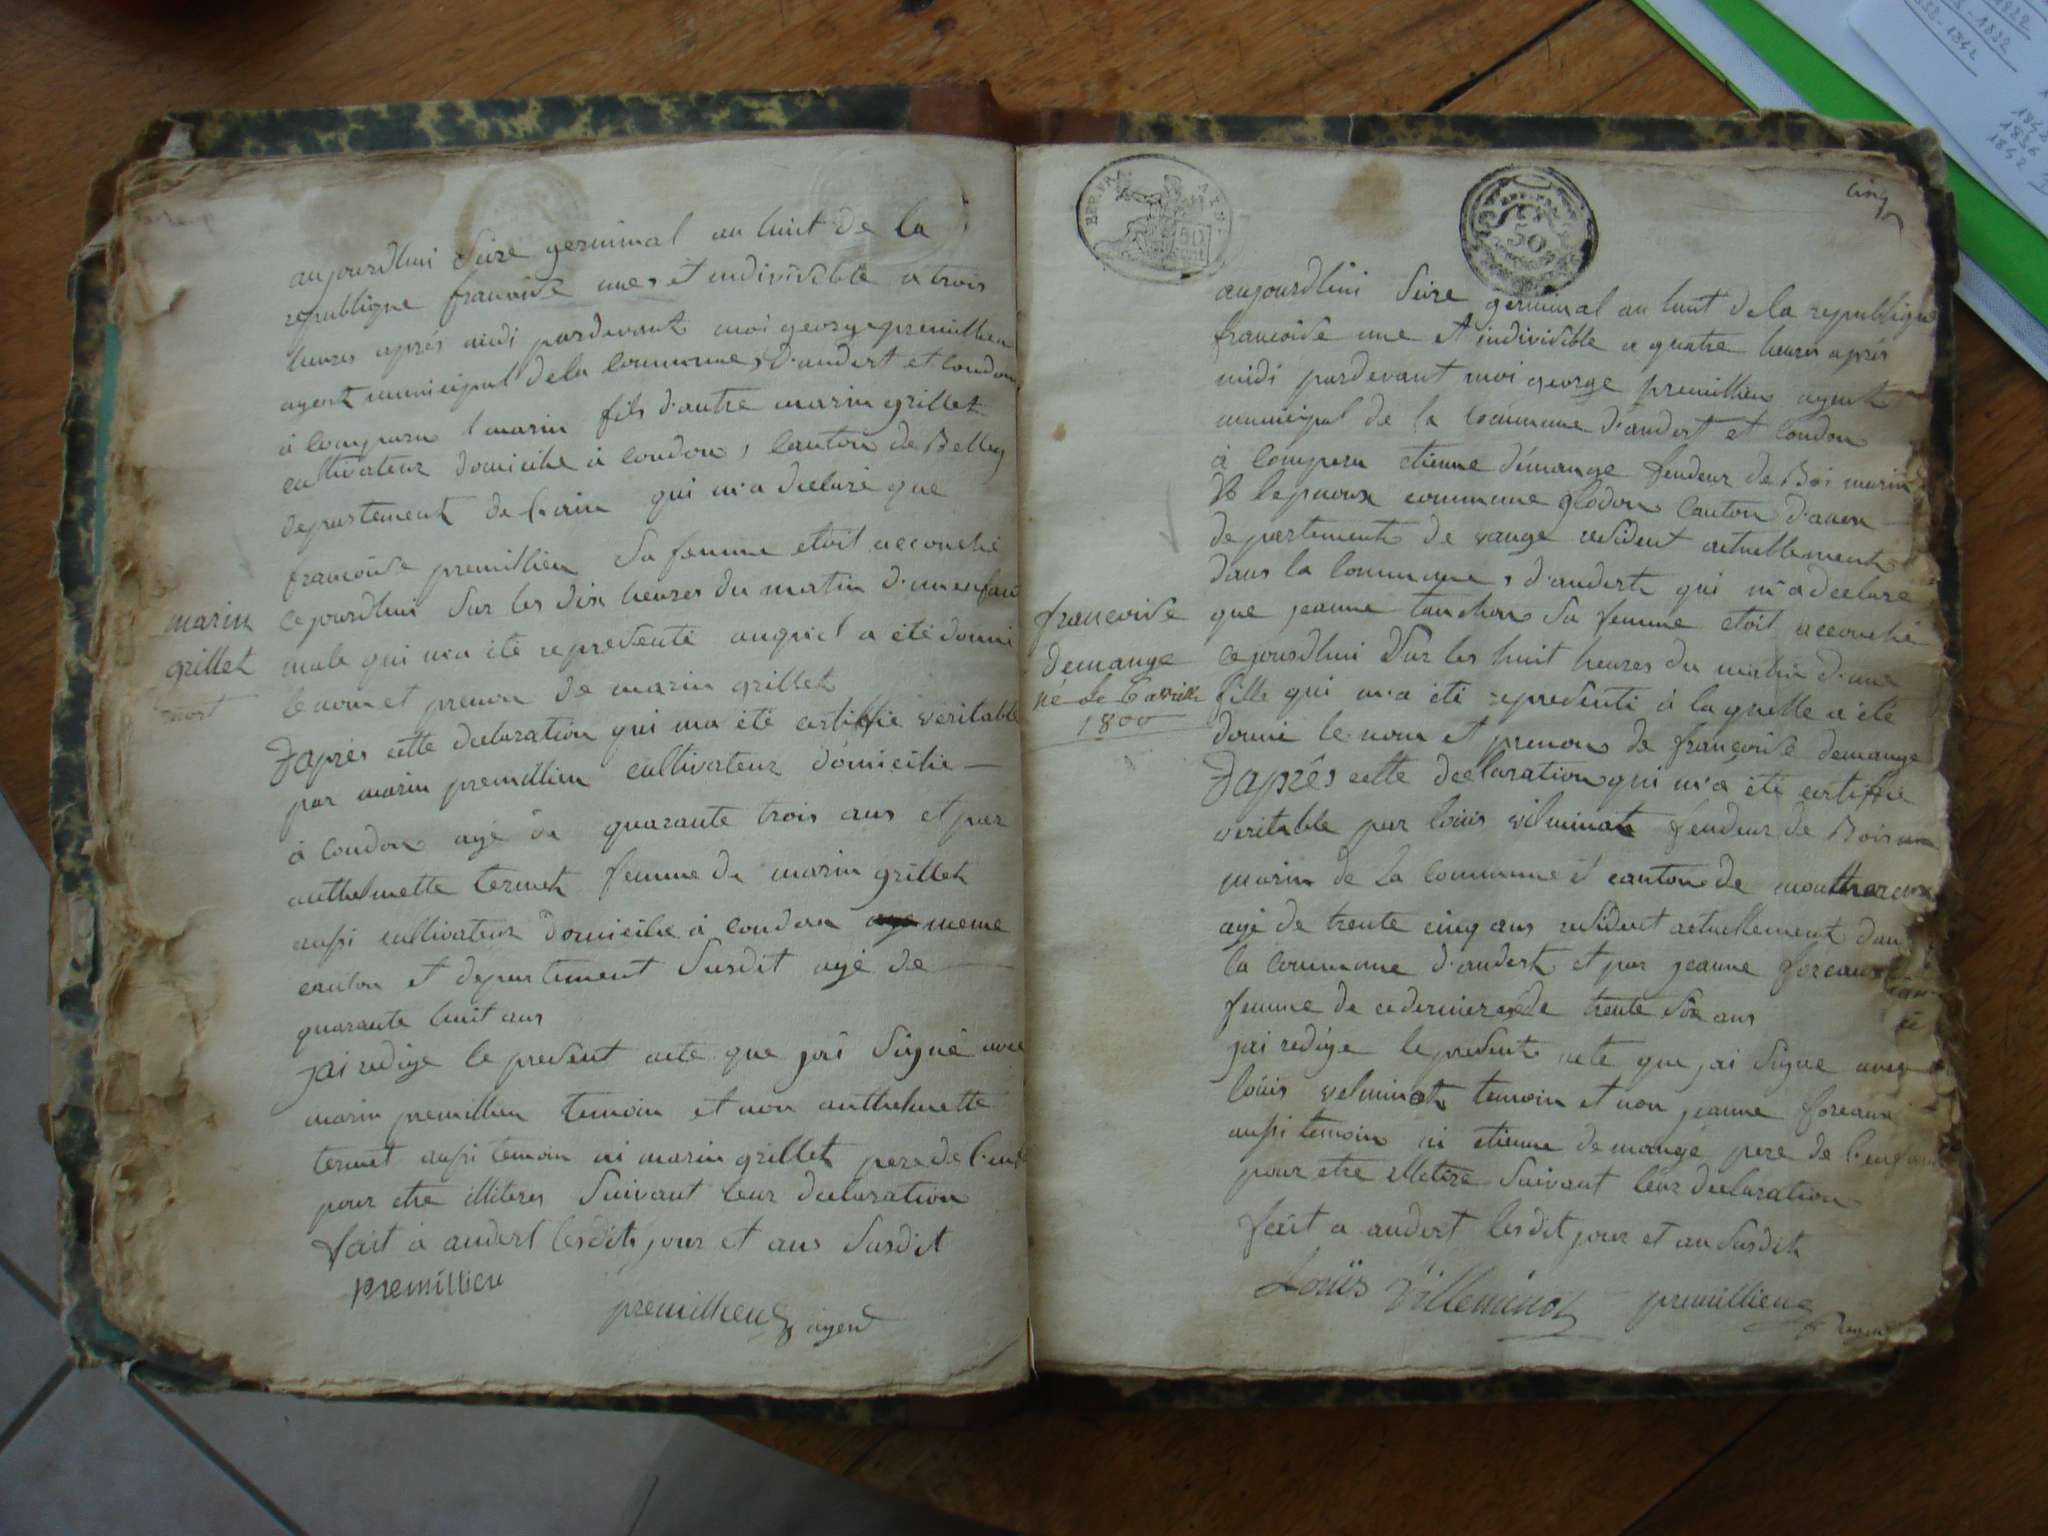 aujourdhui seize germinal an huit de la
republique francoise une et indivisible a trois
heures après midi pardevant moi george premillieu
agent municipal de la commune d'andert et condon
à comparu marin fils d'autre marin grillet
cultivateur domicilié à condon, canton de Belley
departement de l'ain qui m'a declaré que
francoise premillieu sa femme etoit accouché
cejourdhui sur les dix heures du matin d'un enfant
male qui m'a été representé auquel a été donné
le nom et prenom de marin grillet
D'après cette declaration qui ma été certiffié veritable
par marin premillieu cultivateur domicilié
à condon agé de quarante trois ans et par
anthelmette termet femme de marin grillet
aussi cultivateur domicilié à condon meme
canton et departement susdit agé de
quarante huit ans
j'ai redigé le present acte que j'ai signé avec
marin premillieu temoin et non anthelmette
termet aussi temoin ni marin grillet pere de l'enf
pour etre illiteres suivant leur declaration
fait à andert lesdits jour et ans susdit
premillieu
premillieu agent
marin
grillet
mort
REP. FRA.
50
50
cinq
aujourdhui seize germinal an huit de la republique
francoise une et indivisible a quatre heures après
midi pardevant moi george premillieu agent
municipal de la commune d'andert et condon
à comparu etienne demange fendeur de Bois marin
de commune canton
departement de vauge resident actuellement
dans la commune d'andert qui m'a declare
que jeanne tanchon sa femme etoit accouché
cejourdhui sur les huit heures du matin d'une
fille qui m'a été representé à laquelle a été
donné le nom et prenom de francoise demange
D'après cette declaration qui m'a été certiffié
veritable par louis vilminot fendeur de Bois
marin de la commune et canton de
agé de trente cinq ans resident actuellement dan
la commune d'andert et par jeanne foreaux
femme de ce dernier agé de trente six ans
j'ai redigé le present acte que j'ai signé avec
louis velminot temoin et non jeanne foreaux
aussi temoin ni etienne demange pere de l'enfant
pour etre illetire suivant leur declaration
fait a andert lesdit jour et an susdit
Louïs Villeminot premillieu
agent
francoise
demange
né Le 6 avrille
1800
1822
1832
1842
1836
1842